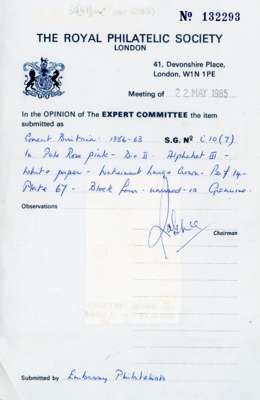 Nº 132293
THE ROYAL PHILATELIC SOCIETY
LONDON
41, Devonshire Place,
London, W1N 1PE
Meeting of 22 MAY 1985
In the OPINION of The EXPERT COMMITTEE the item
submitted as
Great Britain - 1856-63 S.G. Nº C10(7)
1d Pale Rose pink - Die II - Alphabet III -
White paper - Watermark Large Crown - Perf 14 -
Plate 67 - Block four - unused - is Genuine.
Observations
Chairman
Submitted by Embassy Philatelists